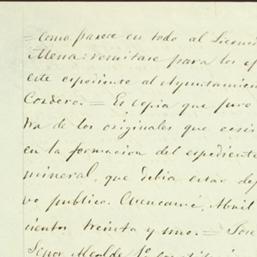 = Como parece en todo al Licenci
Mena: remitase para los ef
este espediente al Ayuntamien
Cordero. = Es copia que
tra de los originales que ecsis
en la formacion del espediente
mineral, que debia estar de
vo publico. Cuencamé, Abril
cientos treinta y uno. = José
Señor Alcalde 1º